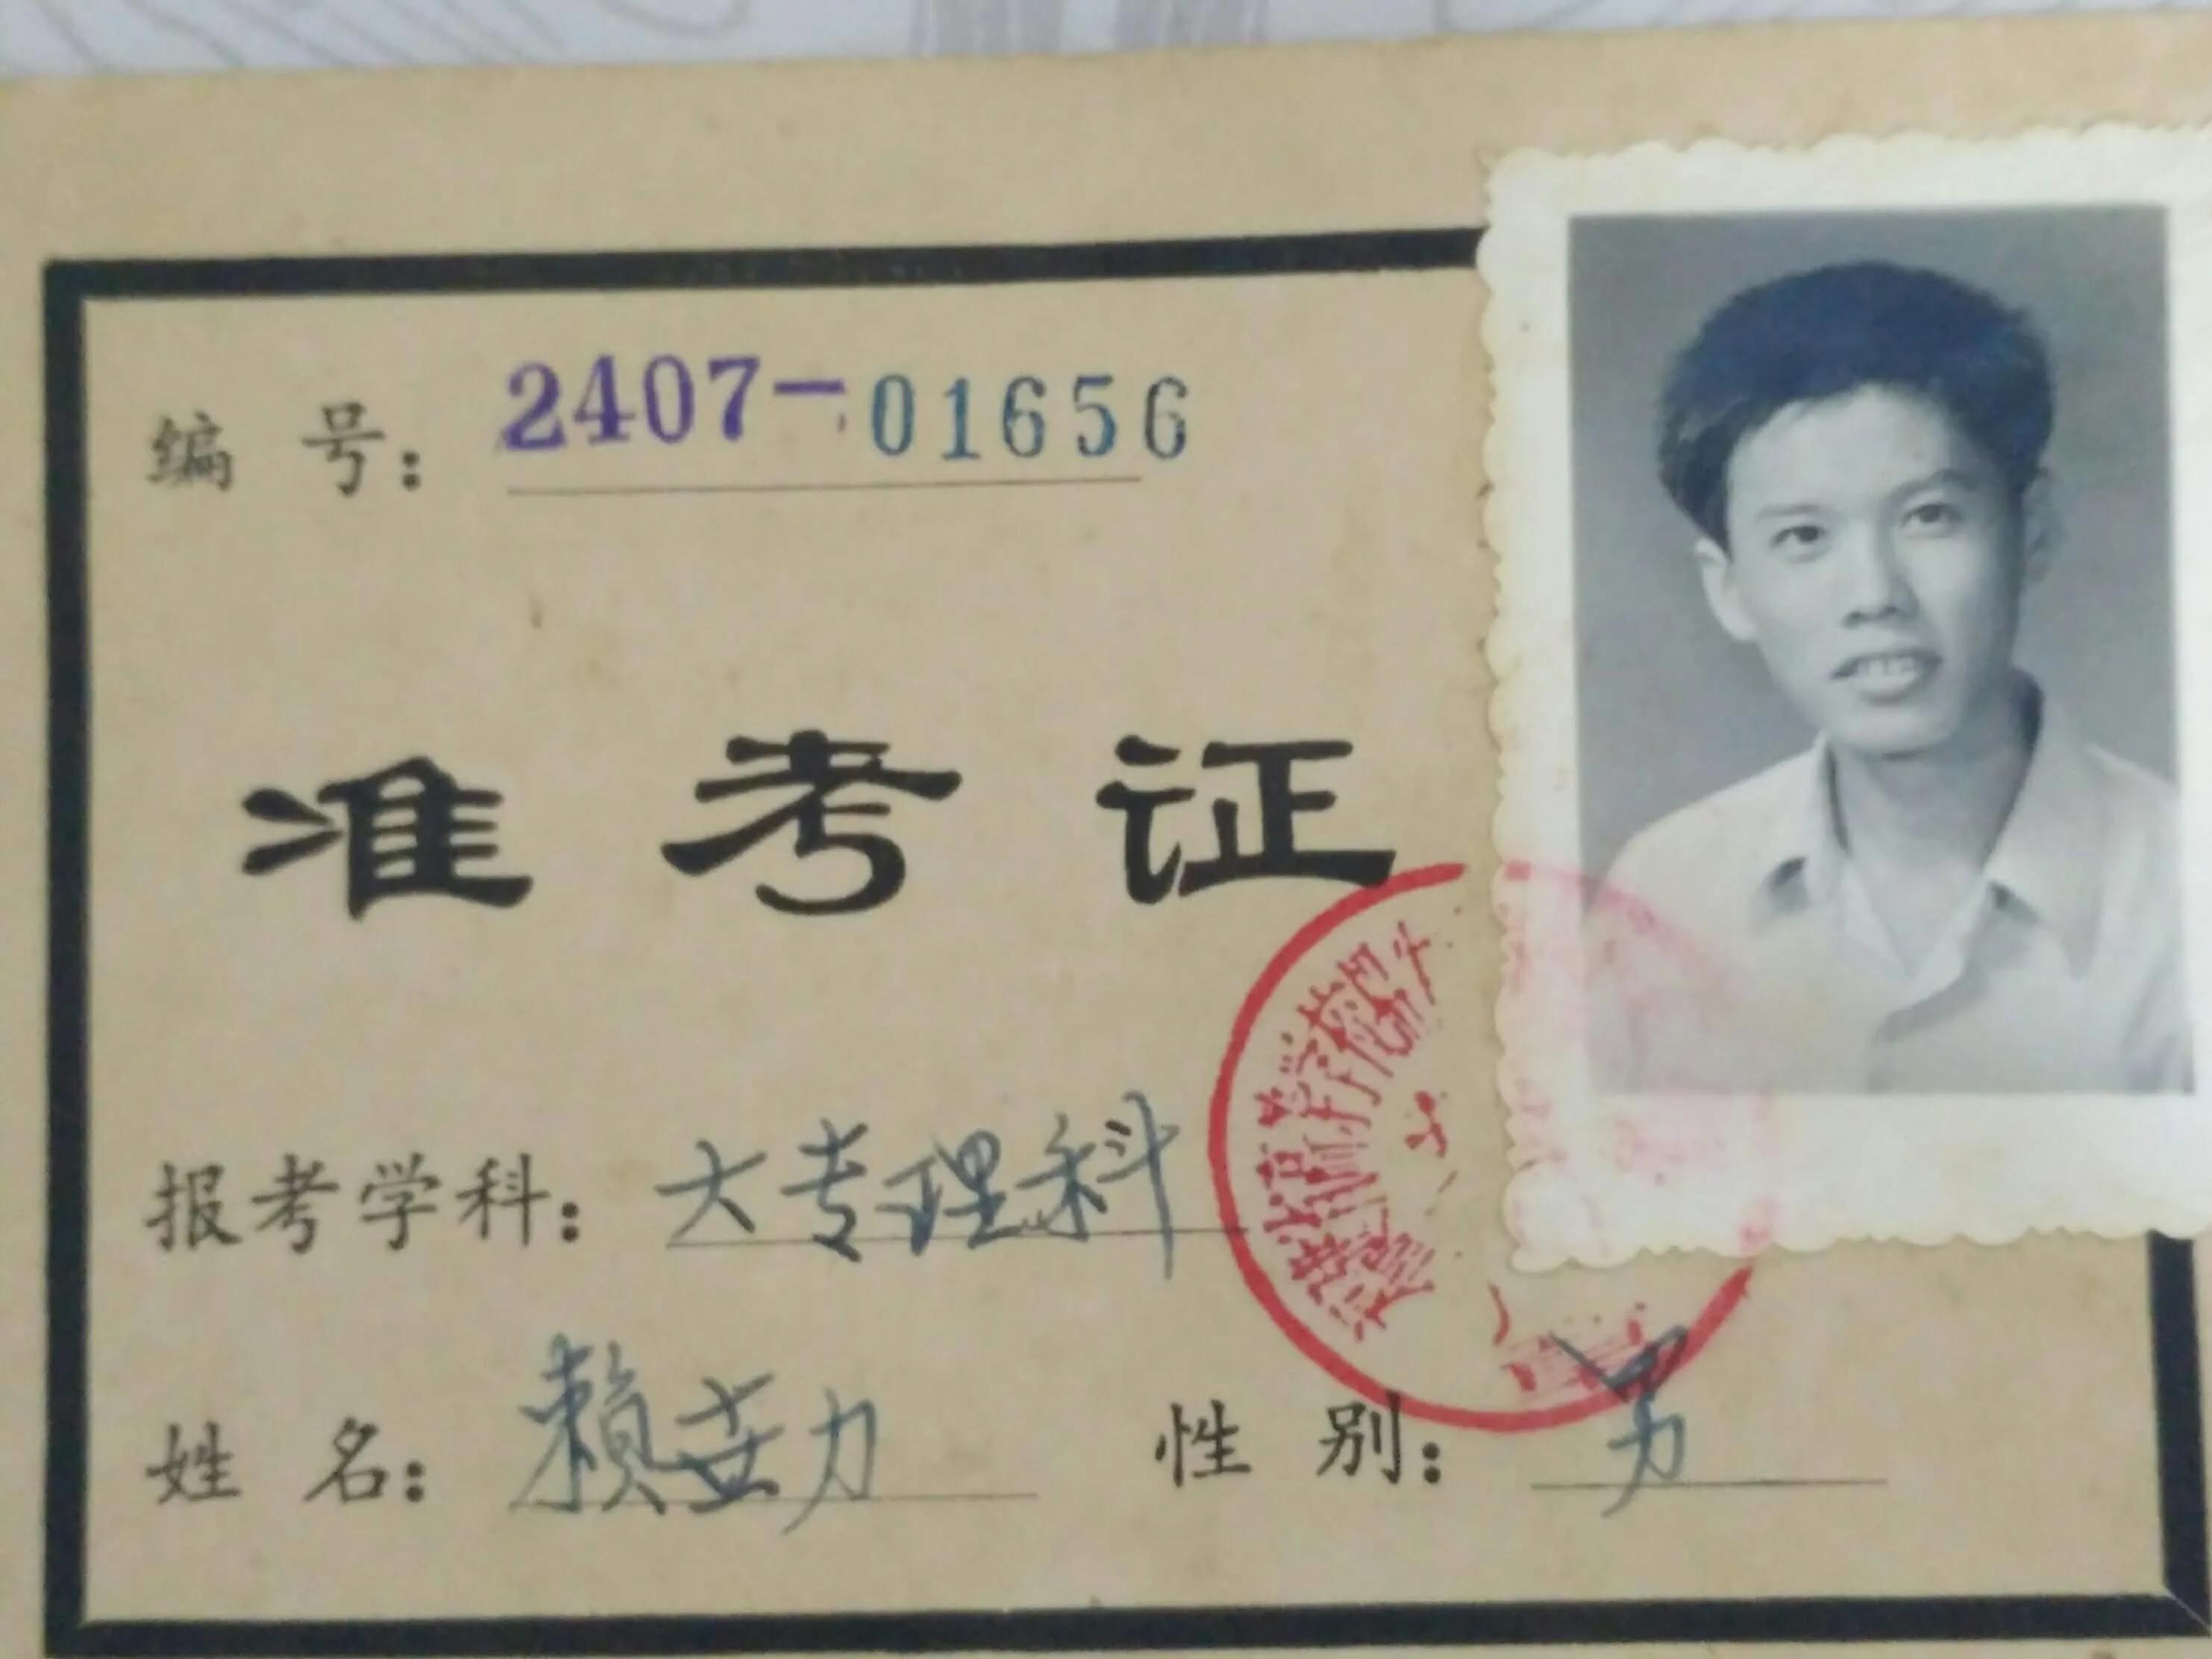 编 号: 2407-01656
准 考 证
报考学科: 大专理科
姓 名: 赖世力 性 别: 男
福建省